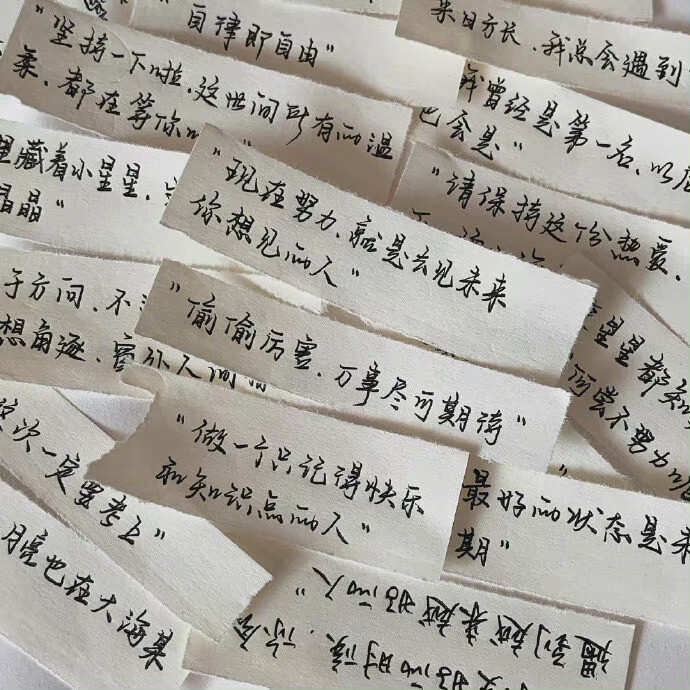 "自律即自由"
来日方长，我总会遇到
"坚持一下啦，这世间所有的温
柔，都在等你
我曾经是第一名，以后
也会是"
里藏着小星星，
晶晶"
"请保持这份热爱，
"现在努力，就是去见未来
你想见的人"
于方向，不
想角逐，
星星都知
何尝不努力呢
"偷偷厉害，万事尽可期待"
"做一个只记得快乐
和知识点的人"
这次一定要考上
最好的状态是未
期"
月亮也在大海某
更好的时候，你会
遇到越来越好的人"